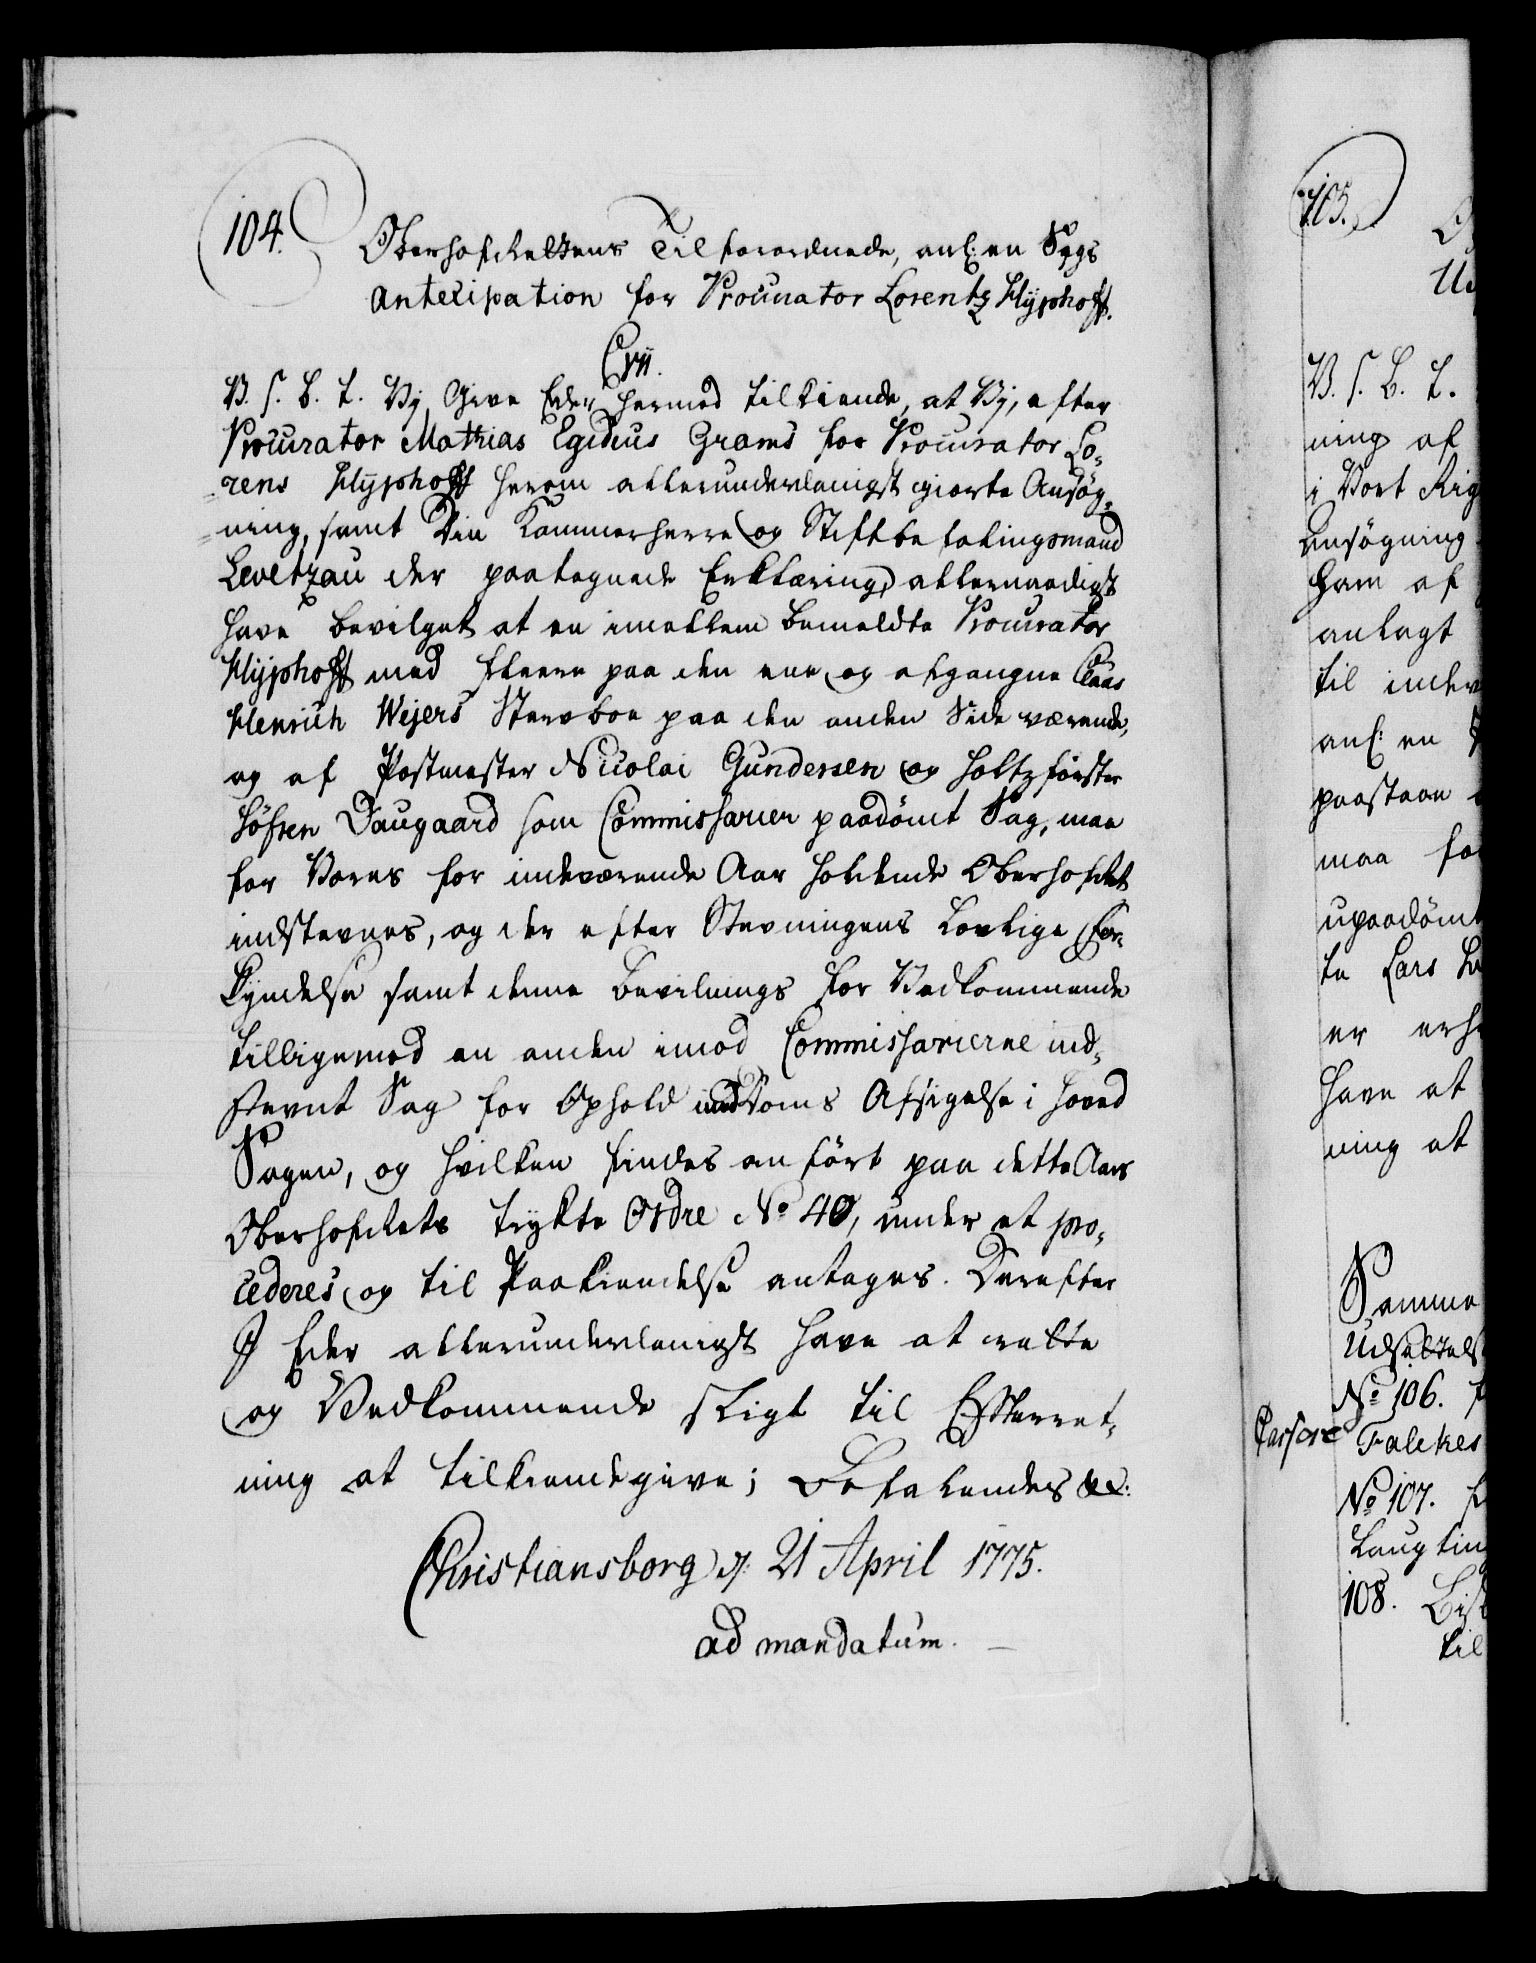 104.
Oberhofrettens Tilforordnede, anl: en Sags
Antecipation for Procurator Lorentz Hyphoff.
C VII.
V. S. B. T. Vi Give Eder hermed tilkiende, at Vi, efter
Procurator Mathias Egidius Grams for Procurator Lo-
rens Hyphoff herom allerunderdanigst giorte Ansøg-
ning, samt Din Kammerherre og Stiftbefalingsmand
Levetzau der paategnede Erklæring, allernaadigst
have bevilget at en imellem bemeldte Procurator
Hyphoff med fleere paa den ene og afgangne Claus
Henrich Wejers Sterboe paa den anden Side værende,
og af Postmester Nicolai Gundersen og Holtzførster
Høfsen Daugaard som Commissarier paadømt Sag, maa
for Vores for indeværende Aar holdende Oberhofret
indstevnes, og der efter Stevningens lovlige For-
kyndelse samt denne bevilnings for Vedkommende
tilligemed en anden imod Commissarierne ind-
stevnt Sag for Ophold med Doms Afsigelse i Hoved
Sagen, og hvilken findes anført paa dette Aars
Oberhofrets trykte Ordre No 40, under et pro-
cederes og til Paakiendelse antages. Derefter
I Eder allerunderdanigst have at rette
og Vedkommende sligt til Efterret-
ning at tilkiendegive; Befalendes &c:
Christiansborg d: 21 April 1775.
ad mandatum.
105.
V. S. B. T.
ning af
i Vort Rig
Ansøgning
ham af
anlagt
til indev
anl: en
paastaae
maa for
upaadømt
te Lars
er erh
have at
ning at
Samme
Udsættels
No 106.
Falckes
No 107.
Laugting
108. Bis
til